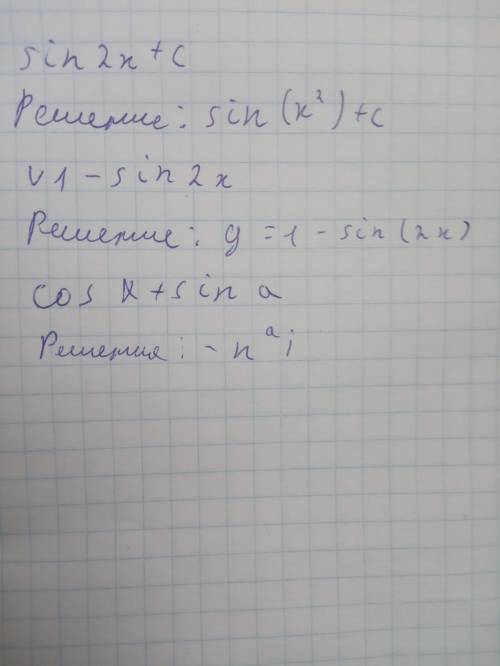 sin 2x + c
Решение: sin (x²) + c
v1 - sin 2x
Решение: y = 1 - sin (2x)
cos x + sin a
Решения: - nᵃ i